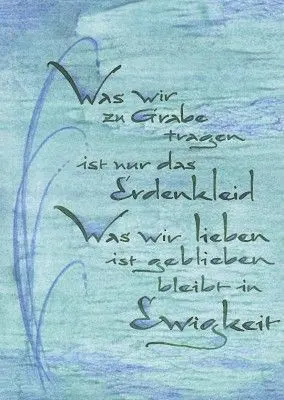 Was wir
zu Grabe
tragen
ist nur das
Erdenkleid
Was wir lieben
ist geblieben
bleibt in
Ewigkeit